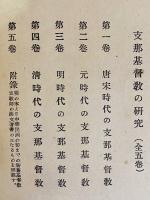 支那基督敎の研究（全五卷）
第一卷 唐宋時代の支那基督敎
第二卷 元時代の支那基督敎
第三卷 明時代の支那基督敎
第四卷 清時代の支那基督敎
第五卷 附錄